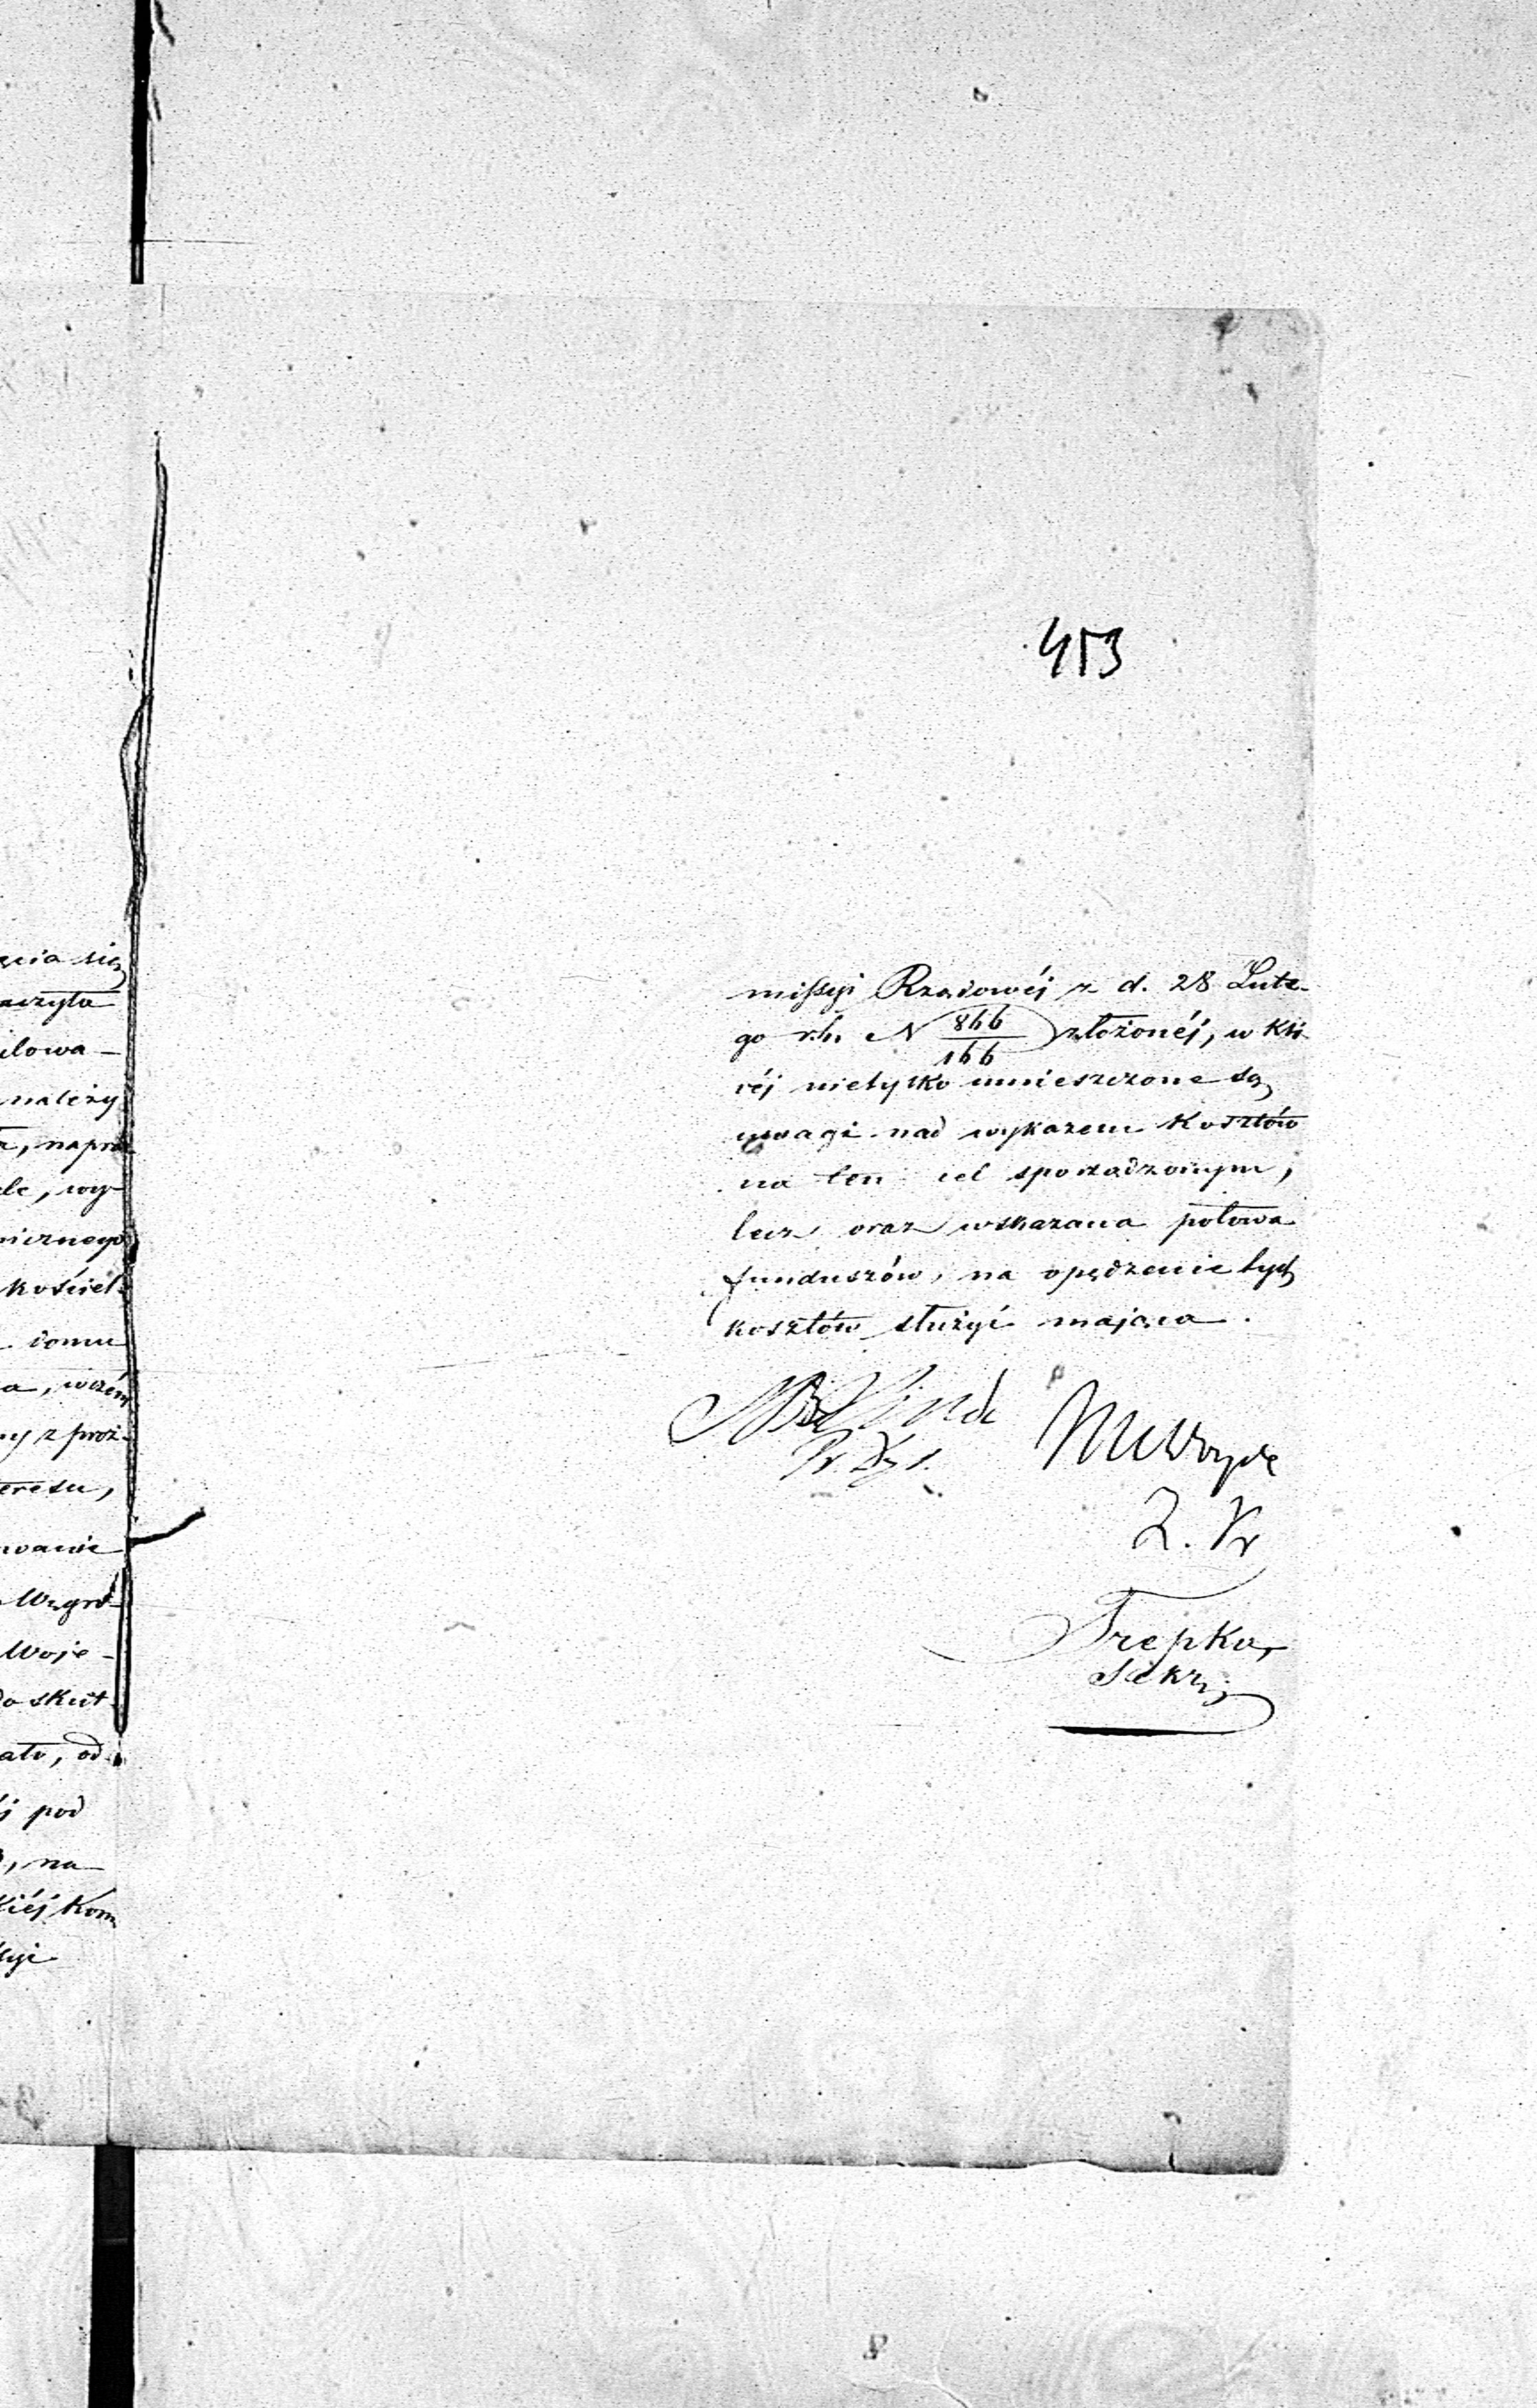 413
ęcia się
aczyła
ilowa-
należy
ele, wy-
nicznego
kościel-
domu
a, wczém
eresu,
owanie
Woje-
do skut-
ato, od-
j pod
, na
kiéj Kom
ssyi
missyi Rządowéj z d. 28 Lute-
go r.b. N 866/166 złożonéj, w któ-
réj nietylko umieszczone są
uwagi nad wykazem kosztów
na ten cel sporządzonym,
lecz oraz wskazana połowa
funduszów, na opędzenie tych
kosztów służyć mająca.
Z. Pr
Trepka,
Sekr.